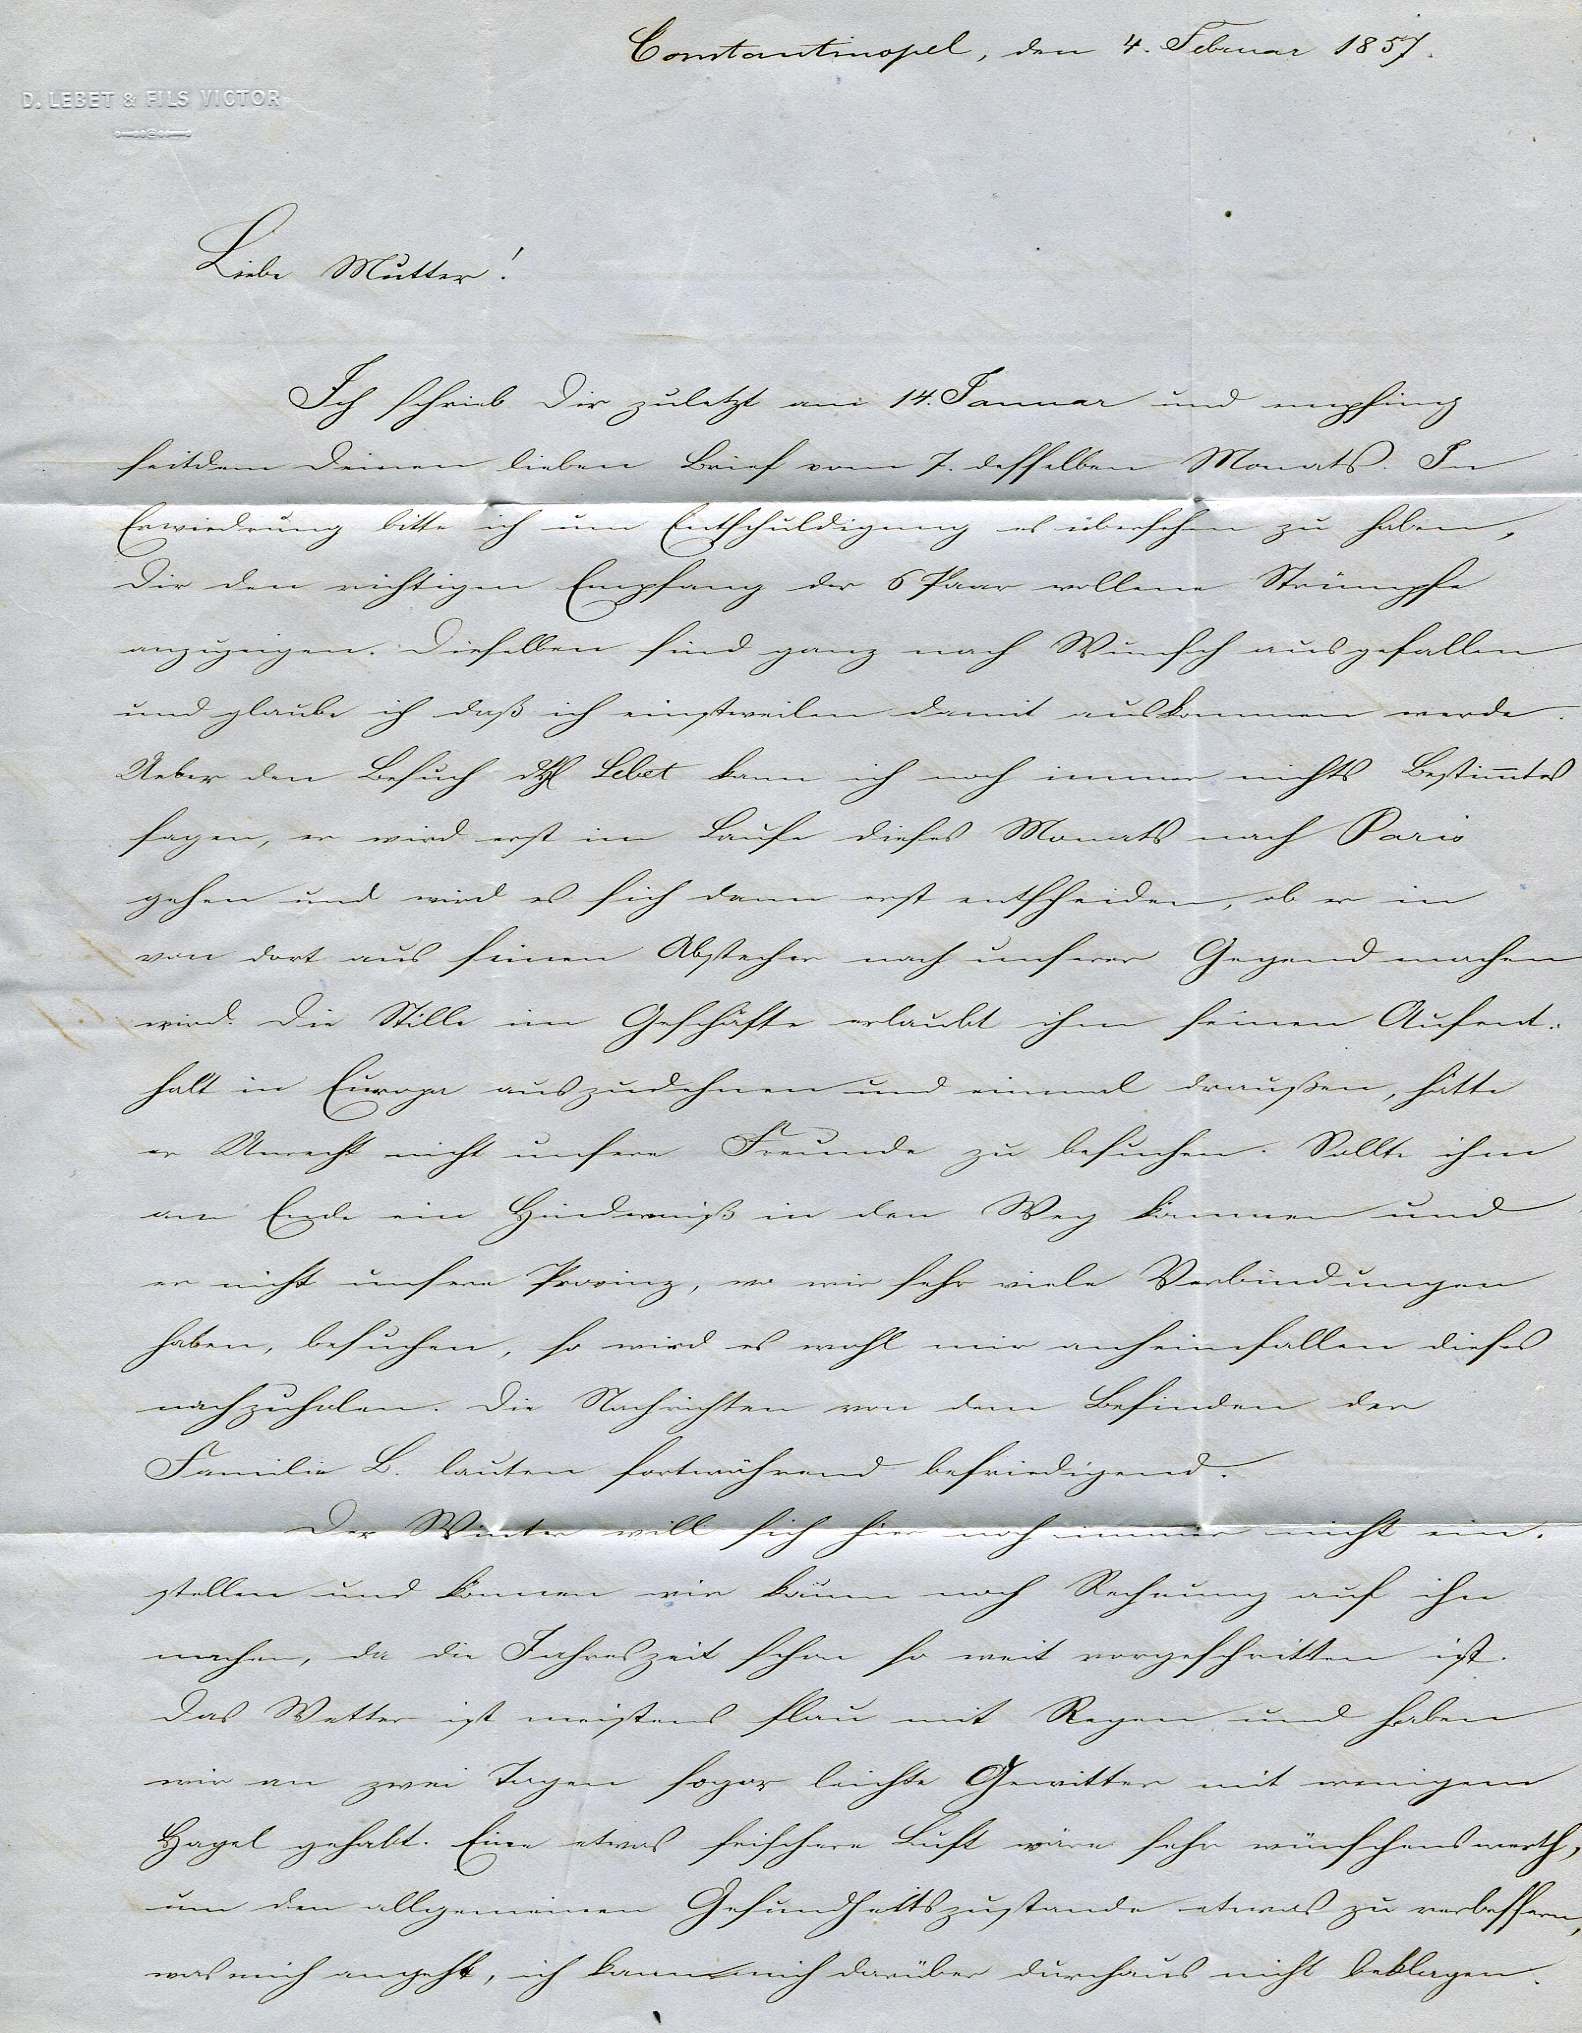 Constantinopel, den 4. Februar 1857.
D. LEBET & FILS VICTOR
Liebe Mutter!
Ich schrieb Dir zuletzt am 14. Januar und empfing
seitdem Deinen lieben Brief vom 7. desselben Monats. In
Erwiedrung bitte ich um Entschuldigung es übersehen zu haben,
Dir den richtigen Empfang der 6 Paar wollene Strümpfe
anzuzeigen. Dieselben sind ganz nach Wunsch ausgefallen
und glaube ich daß ich einstweilen damit auskommen werde.
Ueber den Besuch Lebet kann ich noch immer nichts Bestimmtes
sagen, er wird erst im Laufe dieses Monats nach Paris
gehen und wird es sich dann erst entscheiden, ob er in
von dort aus seinen Abstecher nach unserer Gegend machen
wird. Die Stille im Geschäfte erlaubt ihm seinen Aufent-
halt in Europa auszudehnen und einmal draußen, hätte
er Unrecht nicht unsere Freunde zu besuchen. Sollte ihm
am Ende ein Hinderniß in den Weg kommen und
er nicht unsere Provinz, wo wir sehr viele Verbindungen
haben, besuchen, so wird es wohl mir anheimfallen dieses
nachzuholen. Die Nachrichten von dem Befinden der
Familie B. lauten fortwährend befriedigend.
Der Winter will sich hier noch immer nicht ein-
stellen und können wir kaum noch Rechnung auf ihn
machen, da die Jahreszeit schon so weit vorgeschritten ist.
Das Wetter ist meistens flau mit Regen und haben
wir an zwei Tagen sogar leichte Gewitter mit wenigem
Hagel gehabt. Eine etwas frischere Luft wäre sehr wünschenswerth,
um den allgemeinen Gesundheitszustande etwas zu verbessern,
was mich angeht, ich kann mich darüber durchaus nicht beklagen.